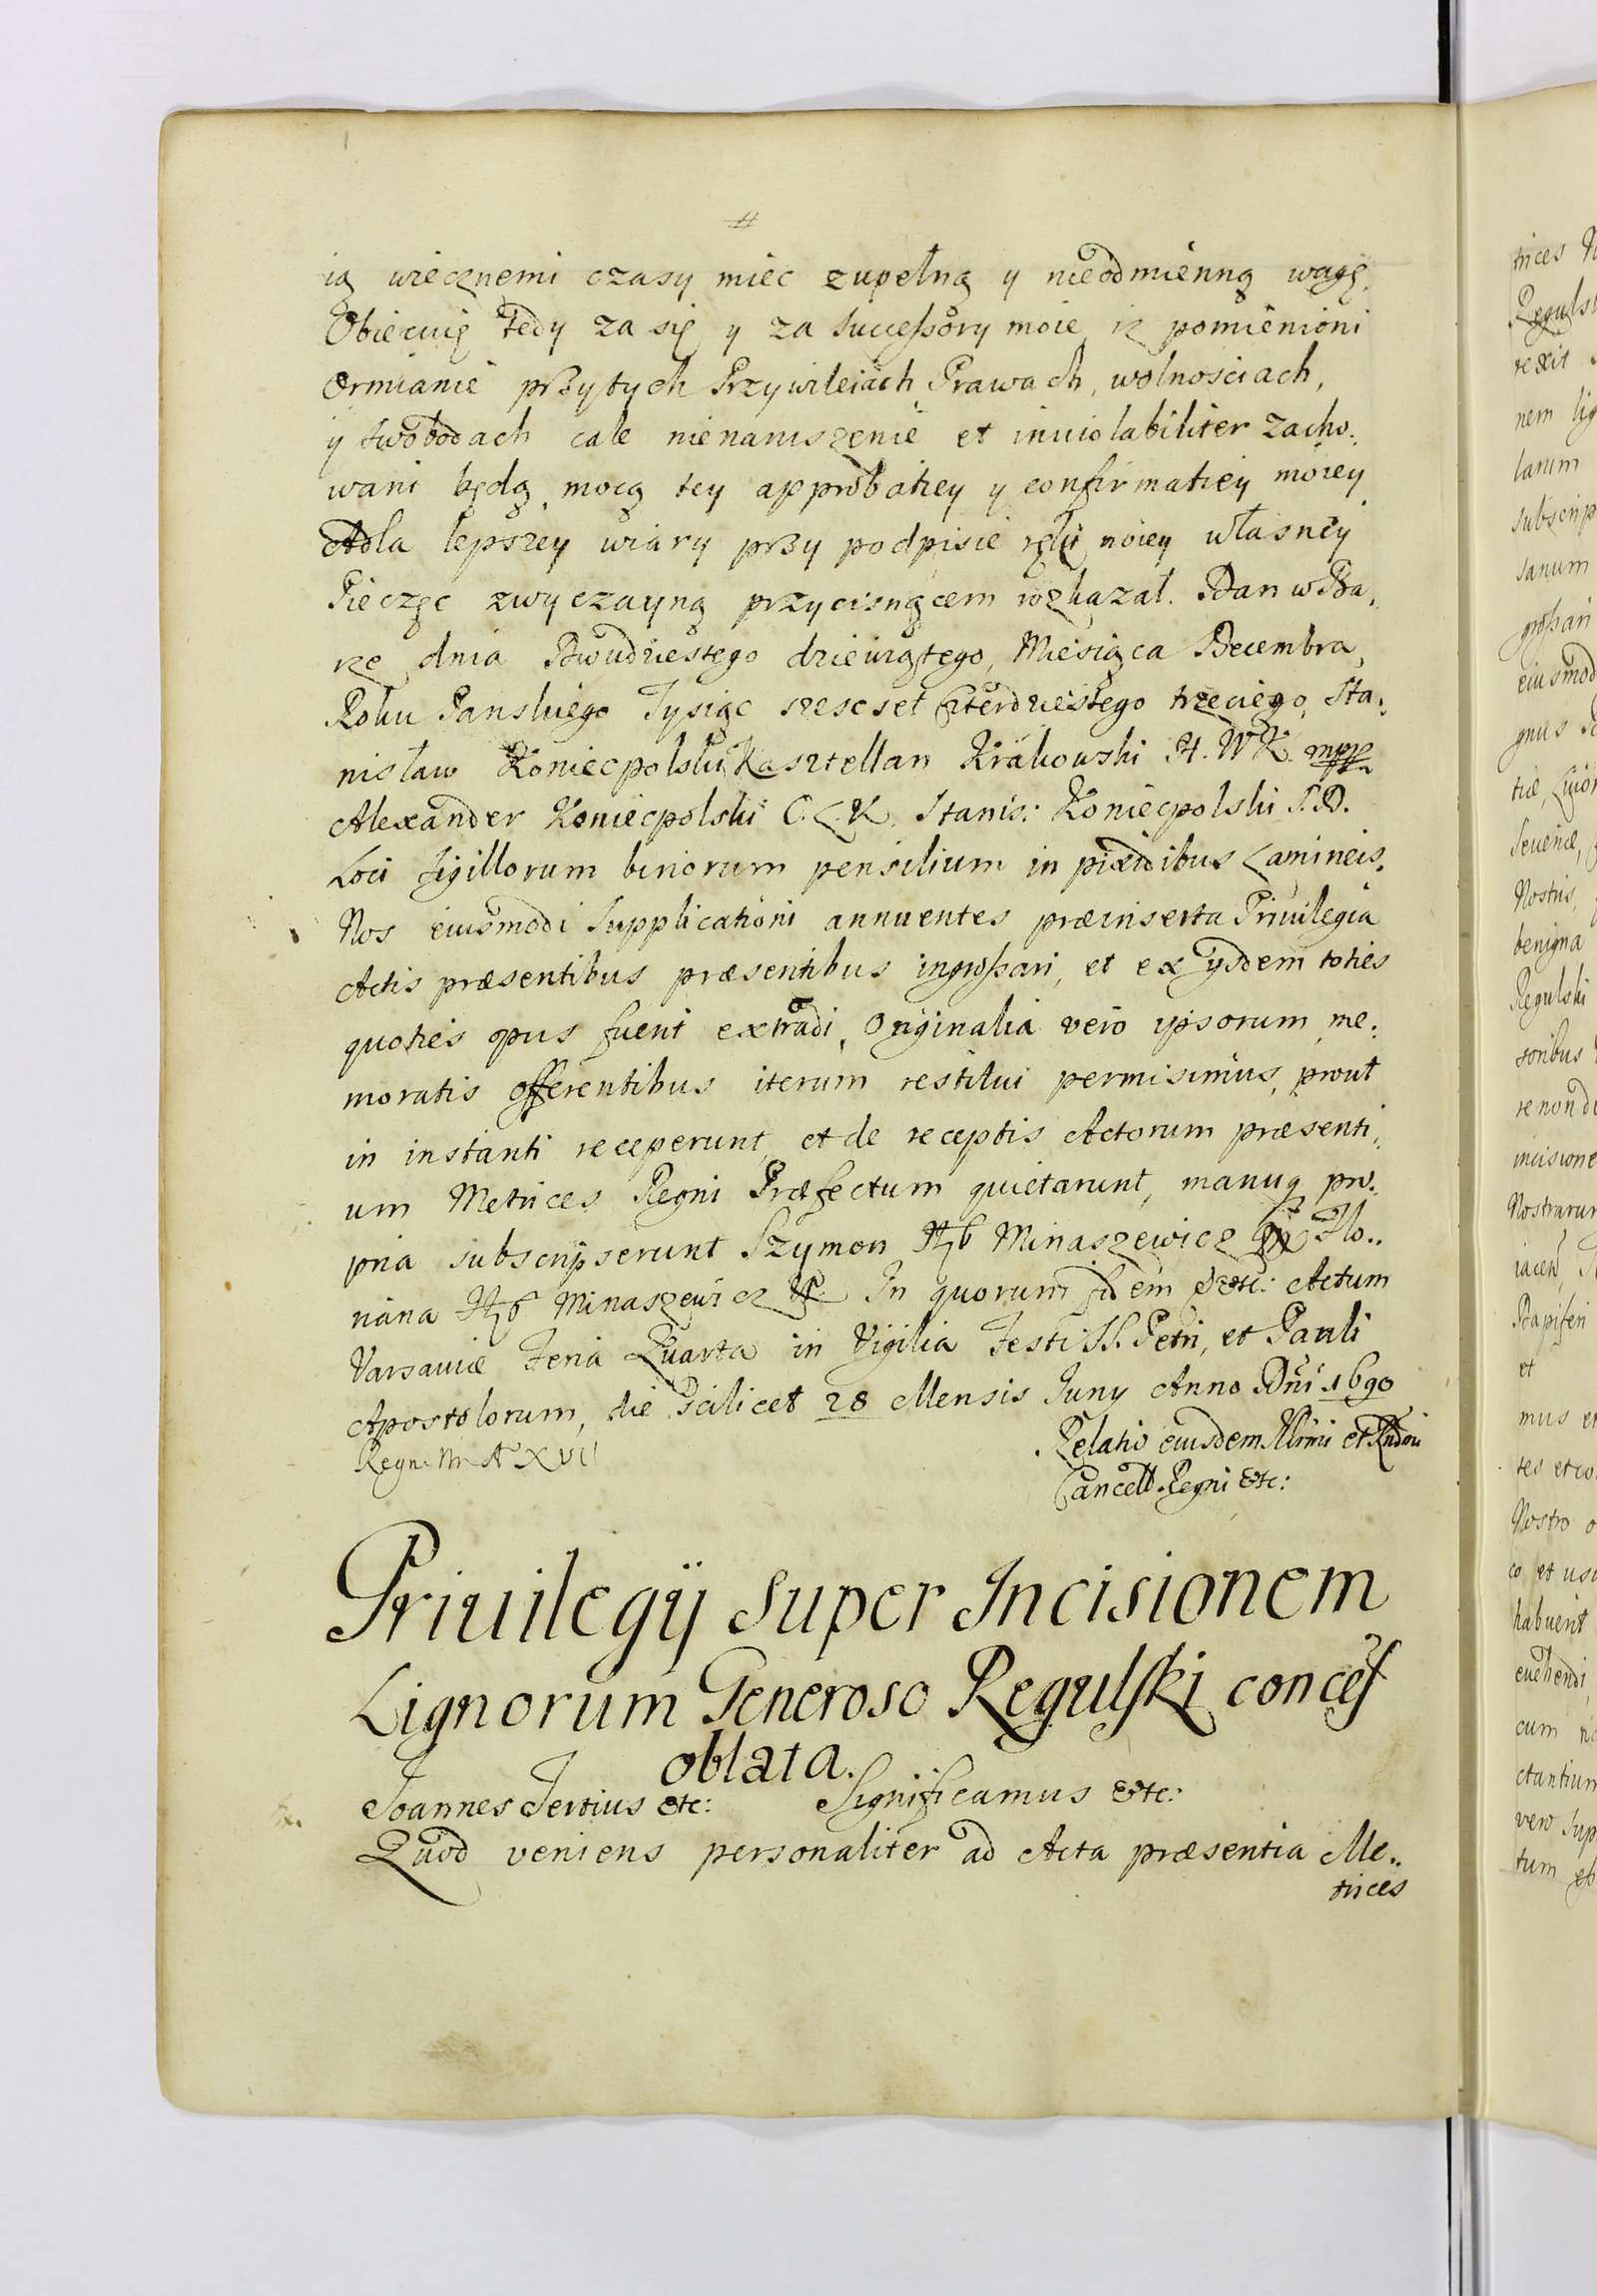 ią wiecznemi czasy miec zupełną y nieodmienną wagę.
Obiecuię tedy za się y za Successory moie iz pomienioni
Ormianie przy tych Przywileiach Prawach, wolnosciach,
y swobodach cale nienaruszenie et inuiolabiliter zacho:
wani będą mocą tey approbatiey y confirmatiey moiey
Adla lepszey wiary przy podpisie ręki moiey własney
Pieczęc zwyczayną przycisnącem rozkazał. Dan w Ba,
rze dnia Dwudziestego dziewiątego, Miesiąca Decembra,
Roku Panskiego Tysiąc szescset Czterdziestego trzeciego, Sta:
nisław Koniecpolski Kasztellan Krakowski H. W K. mpp
Alexander Koniecpolski C. C. K. Stanis: Koniecpolski S. D.
Loci Sigillorum binorum pensilium in pixidibus Lamineis.
Nos eiusmodi Supplicationi annuentes præinserta Priuilegia
Actis præsentibus præsentibus ingrossari, et ex ijsdem toties
quoties opus fuerit extradi, Originalia vero ipsorum me:
moratis offerentibus iterum restitui permisimus, prout
in instanti receperunt, et de receptis Actorum præsenti,
um Metrices Regni Præfectum quietarunt, manuq pro:
pria subscripserunt Szymon Hzb Minaszewicz Flo..
riana Hzb Minaszewicz In quorum fidem &etc: Actum
Varsauiæ Feria Quarta in Vigilia Festi SS. Petri, et Pauli
Apostolorum, die Scilicet 28 Mensis Juny Anno Dni 1690
Regni Nri A XVII
Relatio eiusdem Illrmi et Rndmi
Cancell. Regni &tc:
Priuilegij super Incisionem
Lignorum Generoso Regulski conces
oblata.
Joannes Tertius etc: Significamus &tc:
Quod veniens personaliter ad Acta præsentia Me..
trices
trices
Regulski
rexit
nem lig
larum
subscrip
sanum
grossari
eiusmod
gnus
tiæ,
Seueriæ,
Nostris,
benigna
Regulski
soribus
re non de
incisione
Nostrarum
iacen,
Dapiferi
et
mus et
tes et co
Nostro
co et usu
habuerit
euehendi
cum
ctantium
vero Sup
tum